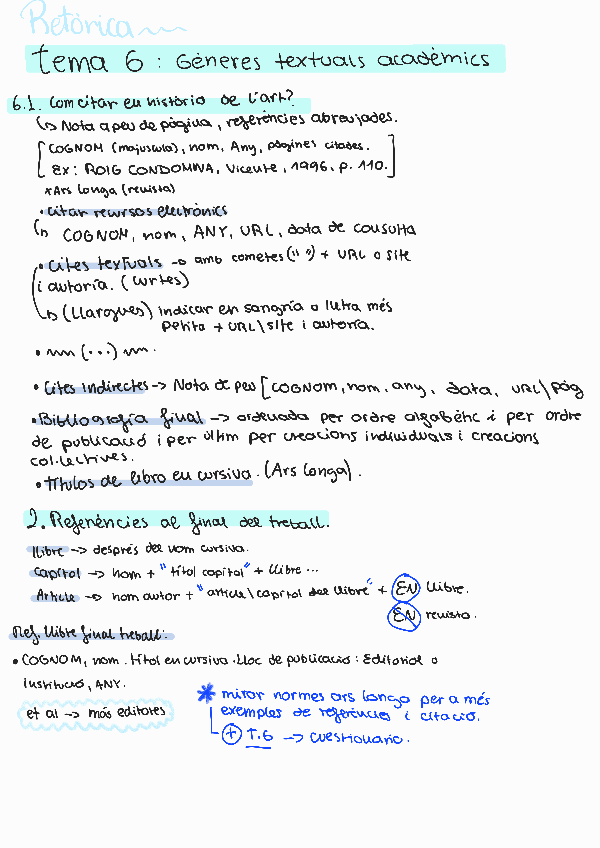 Retòrica
Tema 6 : Gèneres textuals acadèmics
6.1. Com citar en història de l'art?
↳ Nota a peu de pàgina, referències abreujades.
[COGNOM (majúscula), nom, Any, pàgines citades.
Ex: ROIG CONDOMINA, Vicente, 1996, p. 110.]
*Ars Longa (revista)
• Citar recursos electrònics
↳ COGNOM, nom, ANY, URL, data de consulta
• Cites textuals → amb cometes (" ") + URL o site
i autoría. (Curtes)
↳ (Llargues) indicar en sangría o lletra més
petita + URL\site i autoría.
• (...) .
• Cites indirectes → Nota de peu [COGNOM, nom, any, data, URL\pág
• Bibliografía final → ordenada per ordre algabètic i per ordre
de publicació i per últim per creacions individuals i creacions
col·lectives.
• Títulos de libro en cursiva. (Ars Longa).
2. Referències al final del treball.
Llibre → després del nom cursiva.
Capítol → nom + "títol capítol" + Llibre ...
Article → nom autor + "article\capítol del llibre" + EN llibre.
EN revista.
Ref. llibre final treball:
• COGNOM, nom. Títol en cursiva. Lloc de publicació: Editorial o
institució, ANY.
et al → más editores
* mirar normes ars longa per a més
exemples de referències i citació.
+ T.6 → cuestionario.